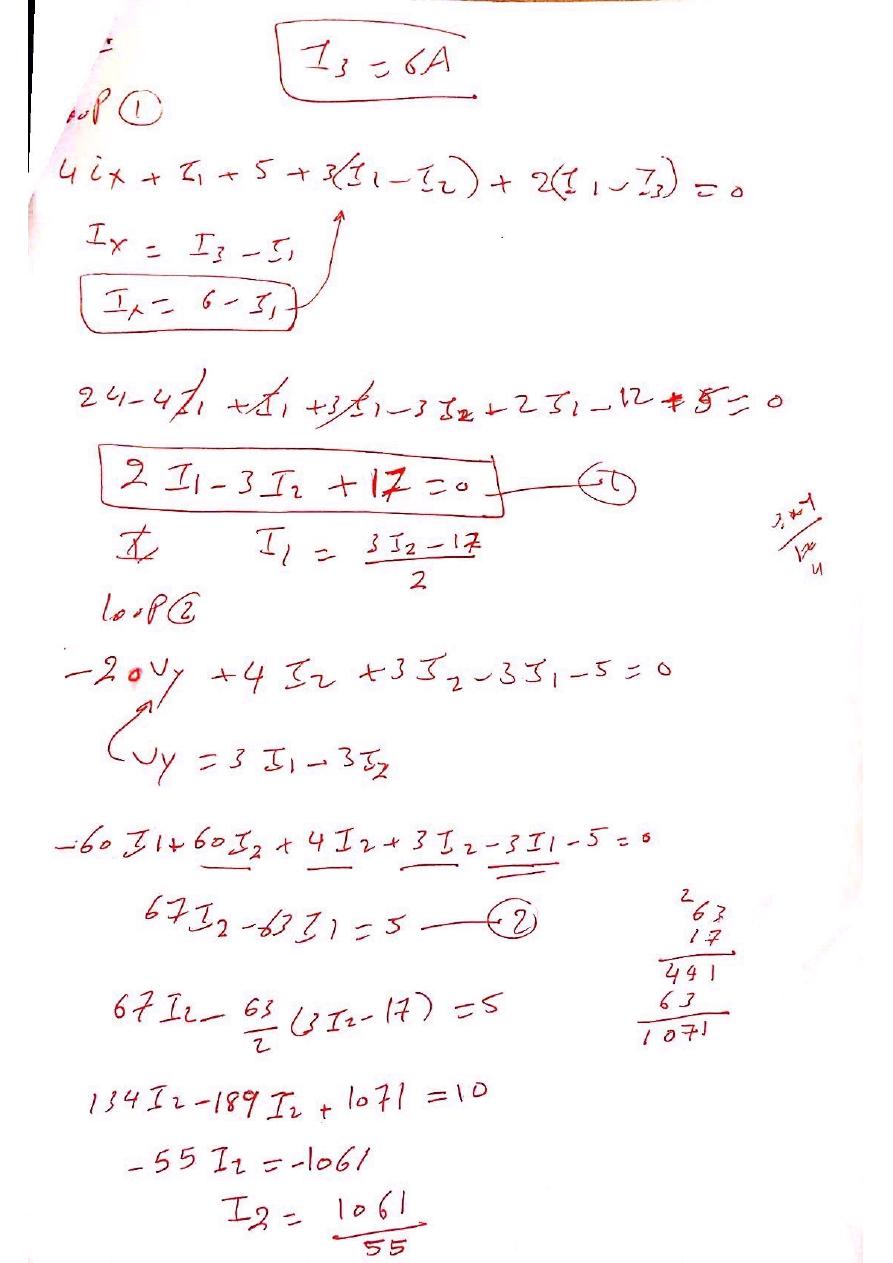 I3 = 6A
①
4ix + I1 + 5 + 3(I1 - I2) + 2(I1 - I3) = 0
Ix = I3 - I1
Ix = 6 - I1
24 - 4I1 + I1 + 3I1 - 3I2 + 2I1 - 12 + 5 = 0
2I1 - 3I2 + 17 = 0 — ①
I1 = (3I2 - 17)/2
loop ②
-20Vy + 4I2 + 3I2 - 3I1 - 5 = 0
Vy = 3I1 - 3I2
-60I1 + 60I2 + 4I2 + 3I2 - 3I1 - 5 = 0
67I2 - 63I1 = 5 — ②
2
63
17
441
63
1071
67I2 - 63/2 (3I2 - 17) = 5
134I2 - 189I2 + 1071 = 10
-55I2 = -1061
I2 = 1061/55